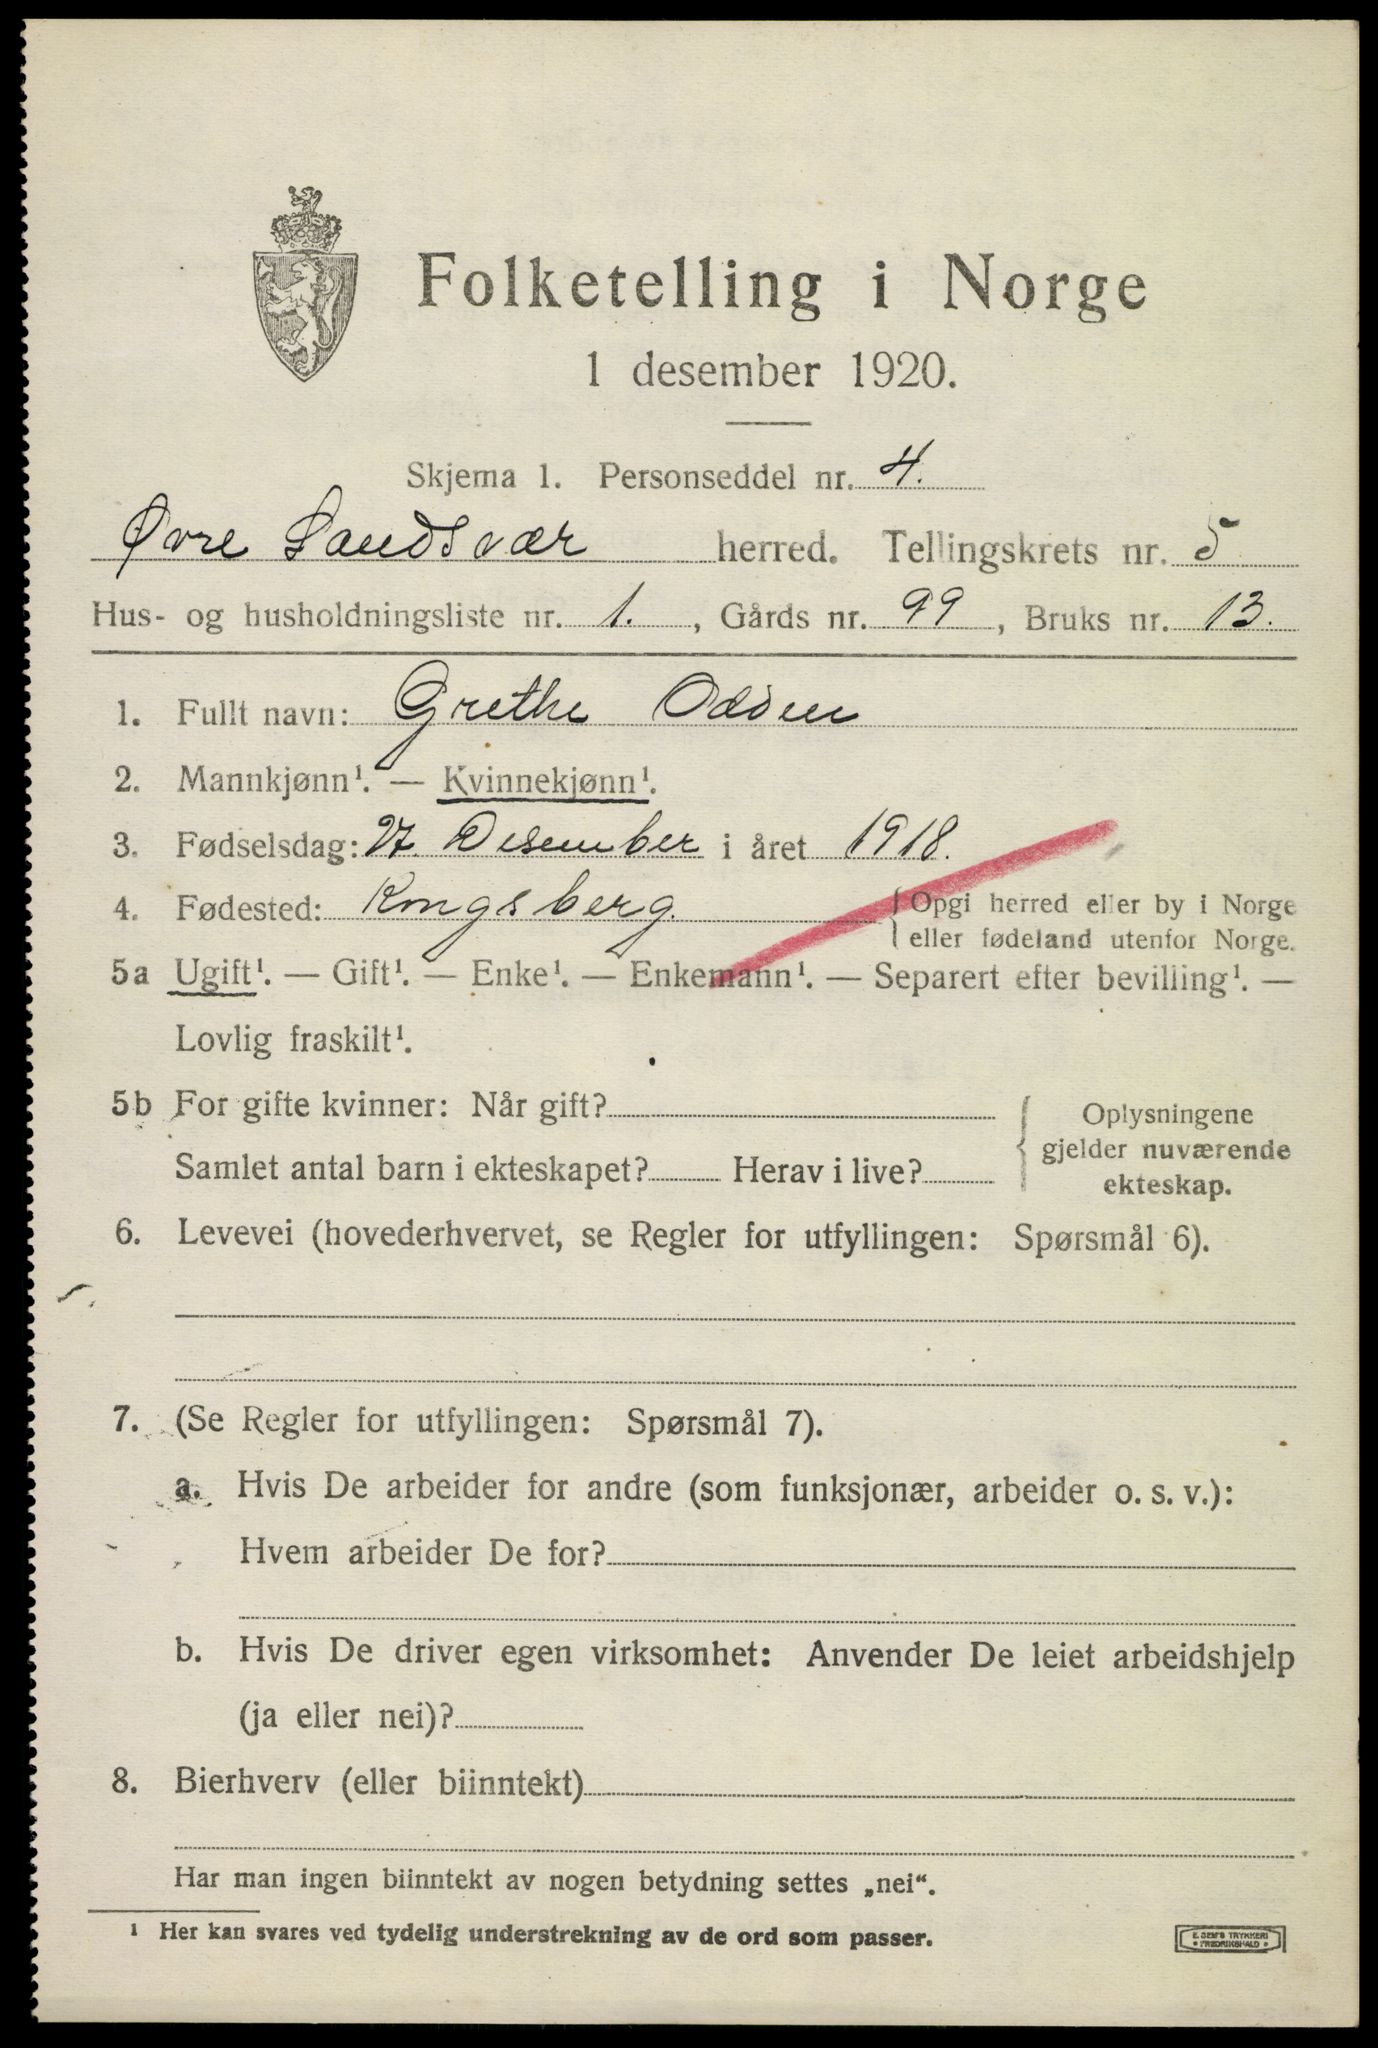 Folketelling i Norge
1 desember 1920.
Skjema 1. Personseddel nr. 4.
Øvre Sandsvær herred. Tellingskrets nr. 5
Hus- og husholdningsliste nr. 1. , Gårds nr. 99 , Bruks nr. 13.
1. Fullt navn: Grethe Odden
2. Mannkjønn¹. — Kvinnekjønn¹.
3. Fødselsdag: 27. Desember i året 1918.
4. Fødested: Kongsberg. { Opgi herred eller by i Norge
eller fødeland utenfor Norge.
5a Ugift¹. — Gift¹. — Enke¹. — Enkemann¹. — Separert efter bevilling¹. —
Lovlig fraskilt¹.
5b For gifte kvinner: Når gift?
Samlet antal barn i ekteskapet? Herav i live?
{ Oplysningene
gjelder nuværende
ekteskap.
6. Levevei (hovederhvervet, se Regler for utfyllingen: Spørsmål 6).
7. (Se Regler for utfyllingen: Spørsmål 7).
a. Hvis De arbeider for andre (som funksjonær, arbeider o. s. v.):
Hvem arbeider De for?
b. Hvis De driver egen virksomhet: Anvender De leiet arbeidshjelp
(ja eller nei)?
8. Bierhverv (eller biinntekt)
Har man ingen biinntekt av nogen betydning settes „nei“.
¹ Her kan svares ved tydelig understrekning av de ord som passer.
E. SEM'S TRYKKERI
• FREDRIKSHALD •